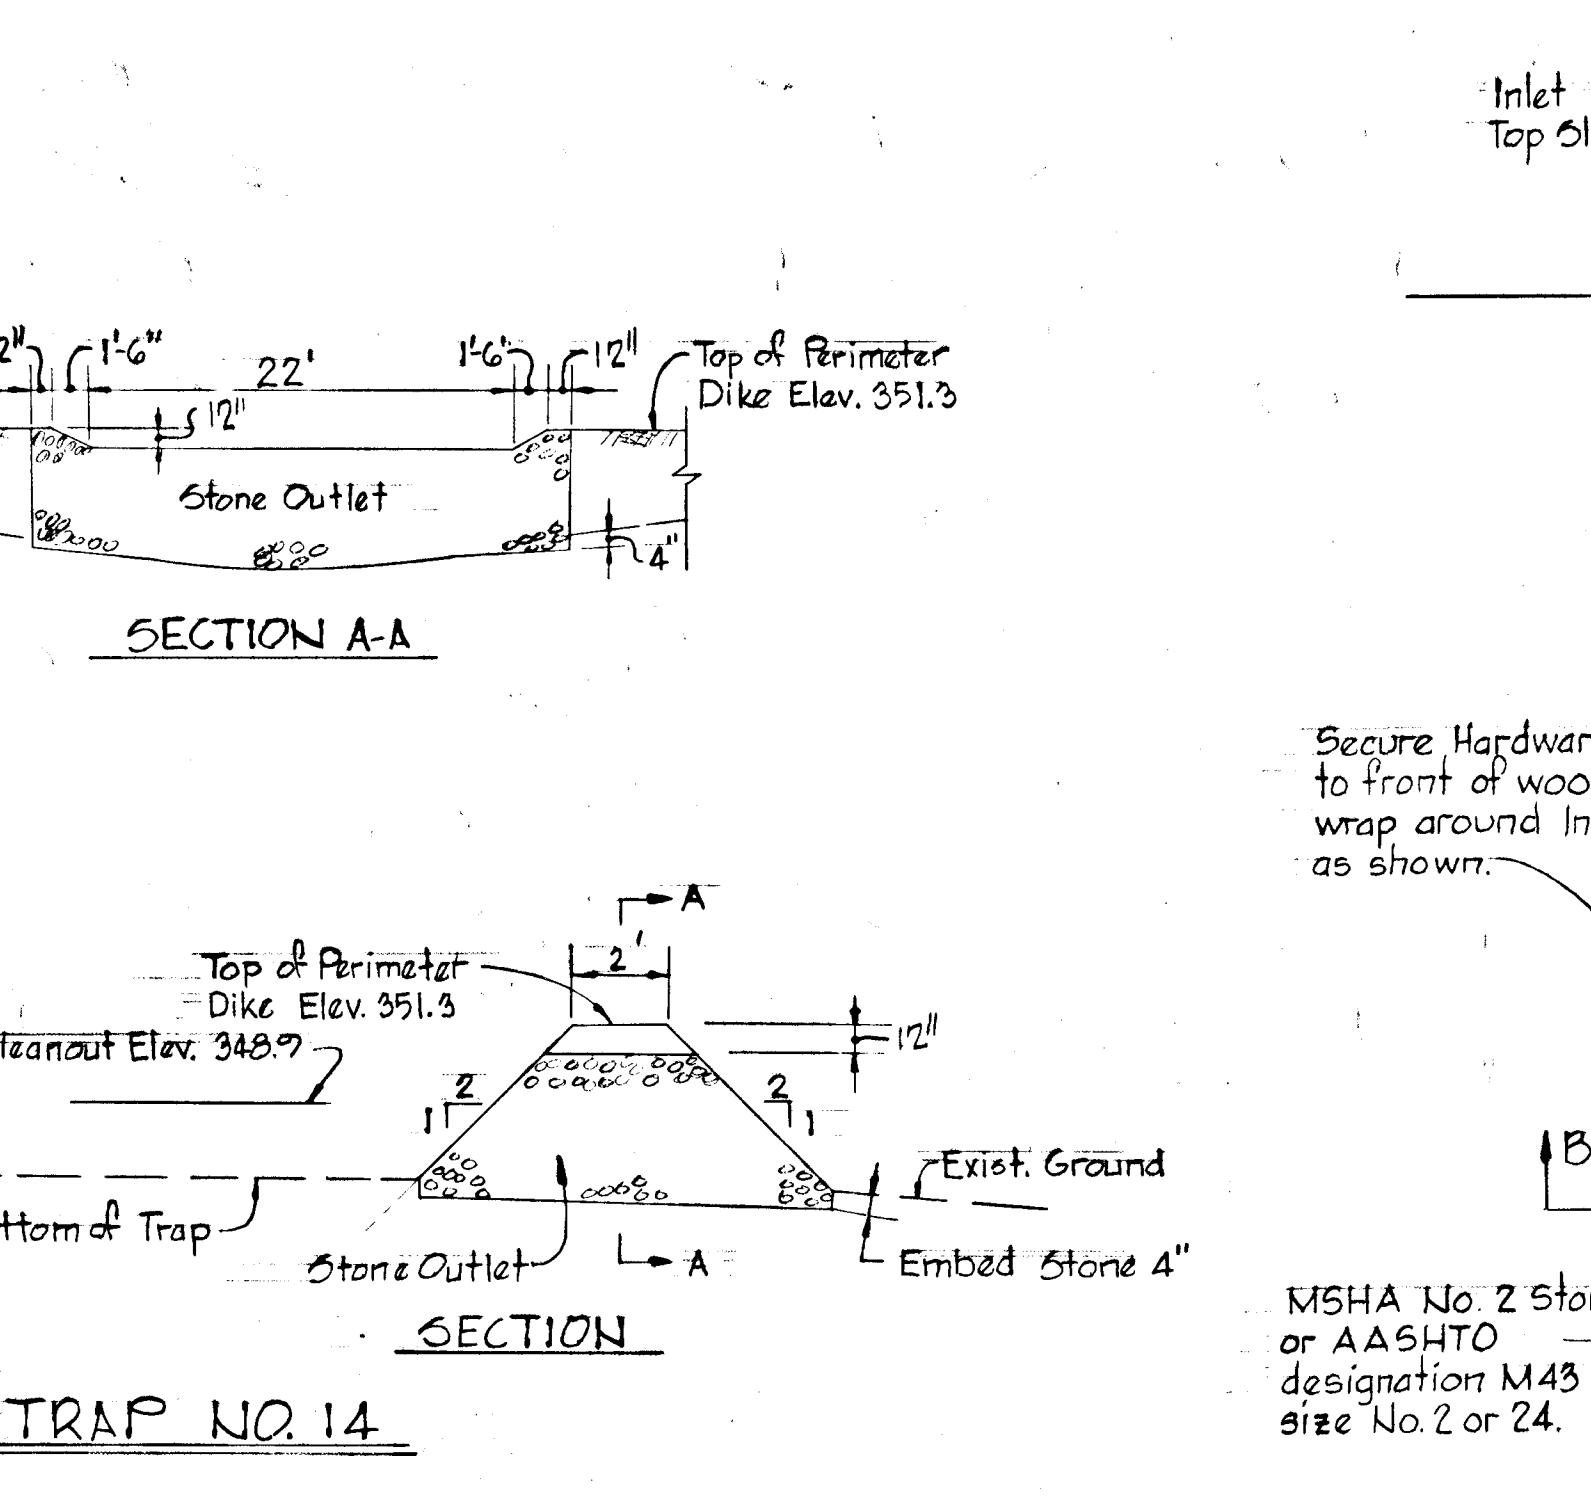 Inlet
Top Sl
2" 1'-6" 22' 1'-6" 12"
12"
Top of Perimeter
Dike Elev. 351.3
Stone Outlet
4"
SECTION A-A
Secure Hardwar
to front of woo
wrap around In
as shown.
A
2'
Top of Perimeter
Dike Elev. 351.3
leanout Elev. 348.9
12"
2
1
2
1
Exist. Ground
ttom of Trap
Stone Outlet
A
Embed Stone 4"
B
SECTION
TRAP NO. 14
MSHA No. 2 Ston
or AASHTO
designation M43
size No. 2 or 24.